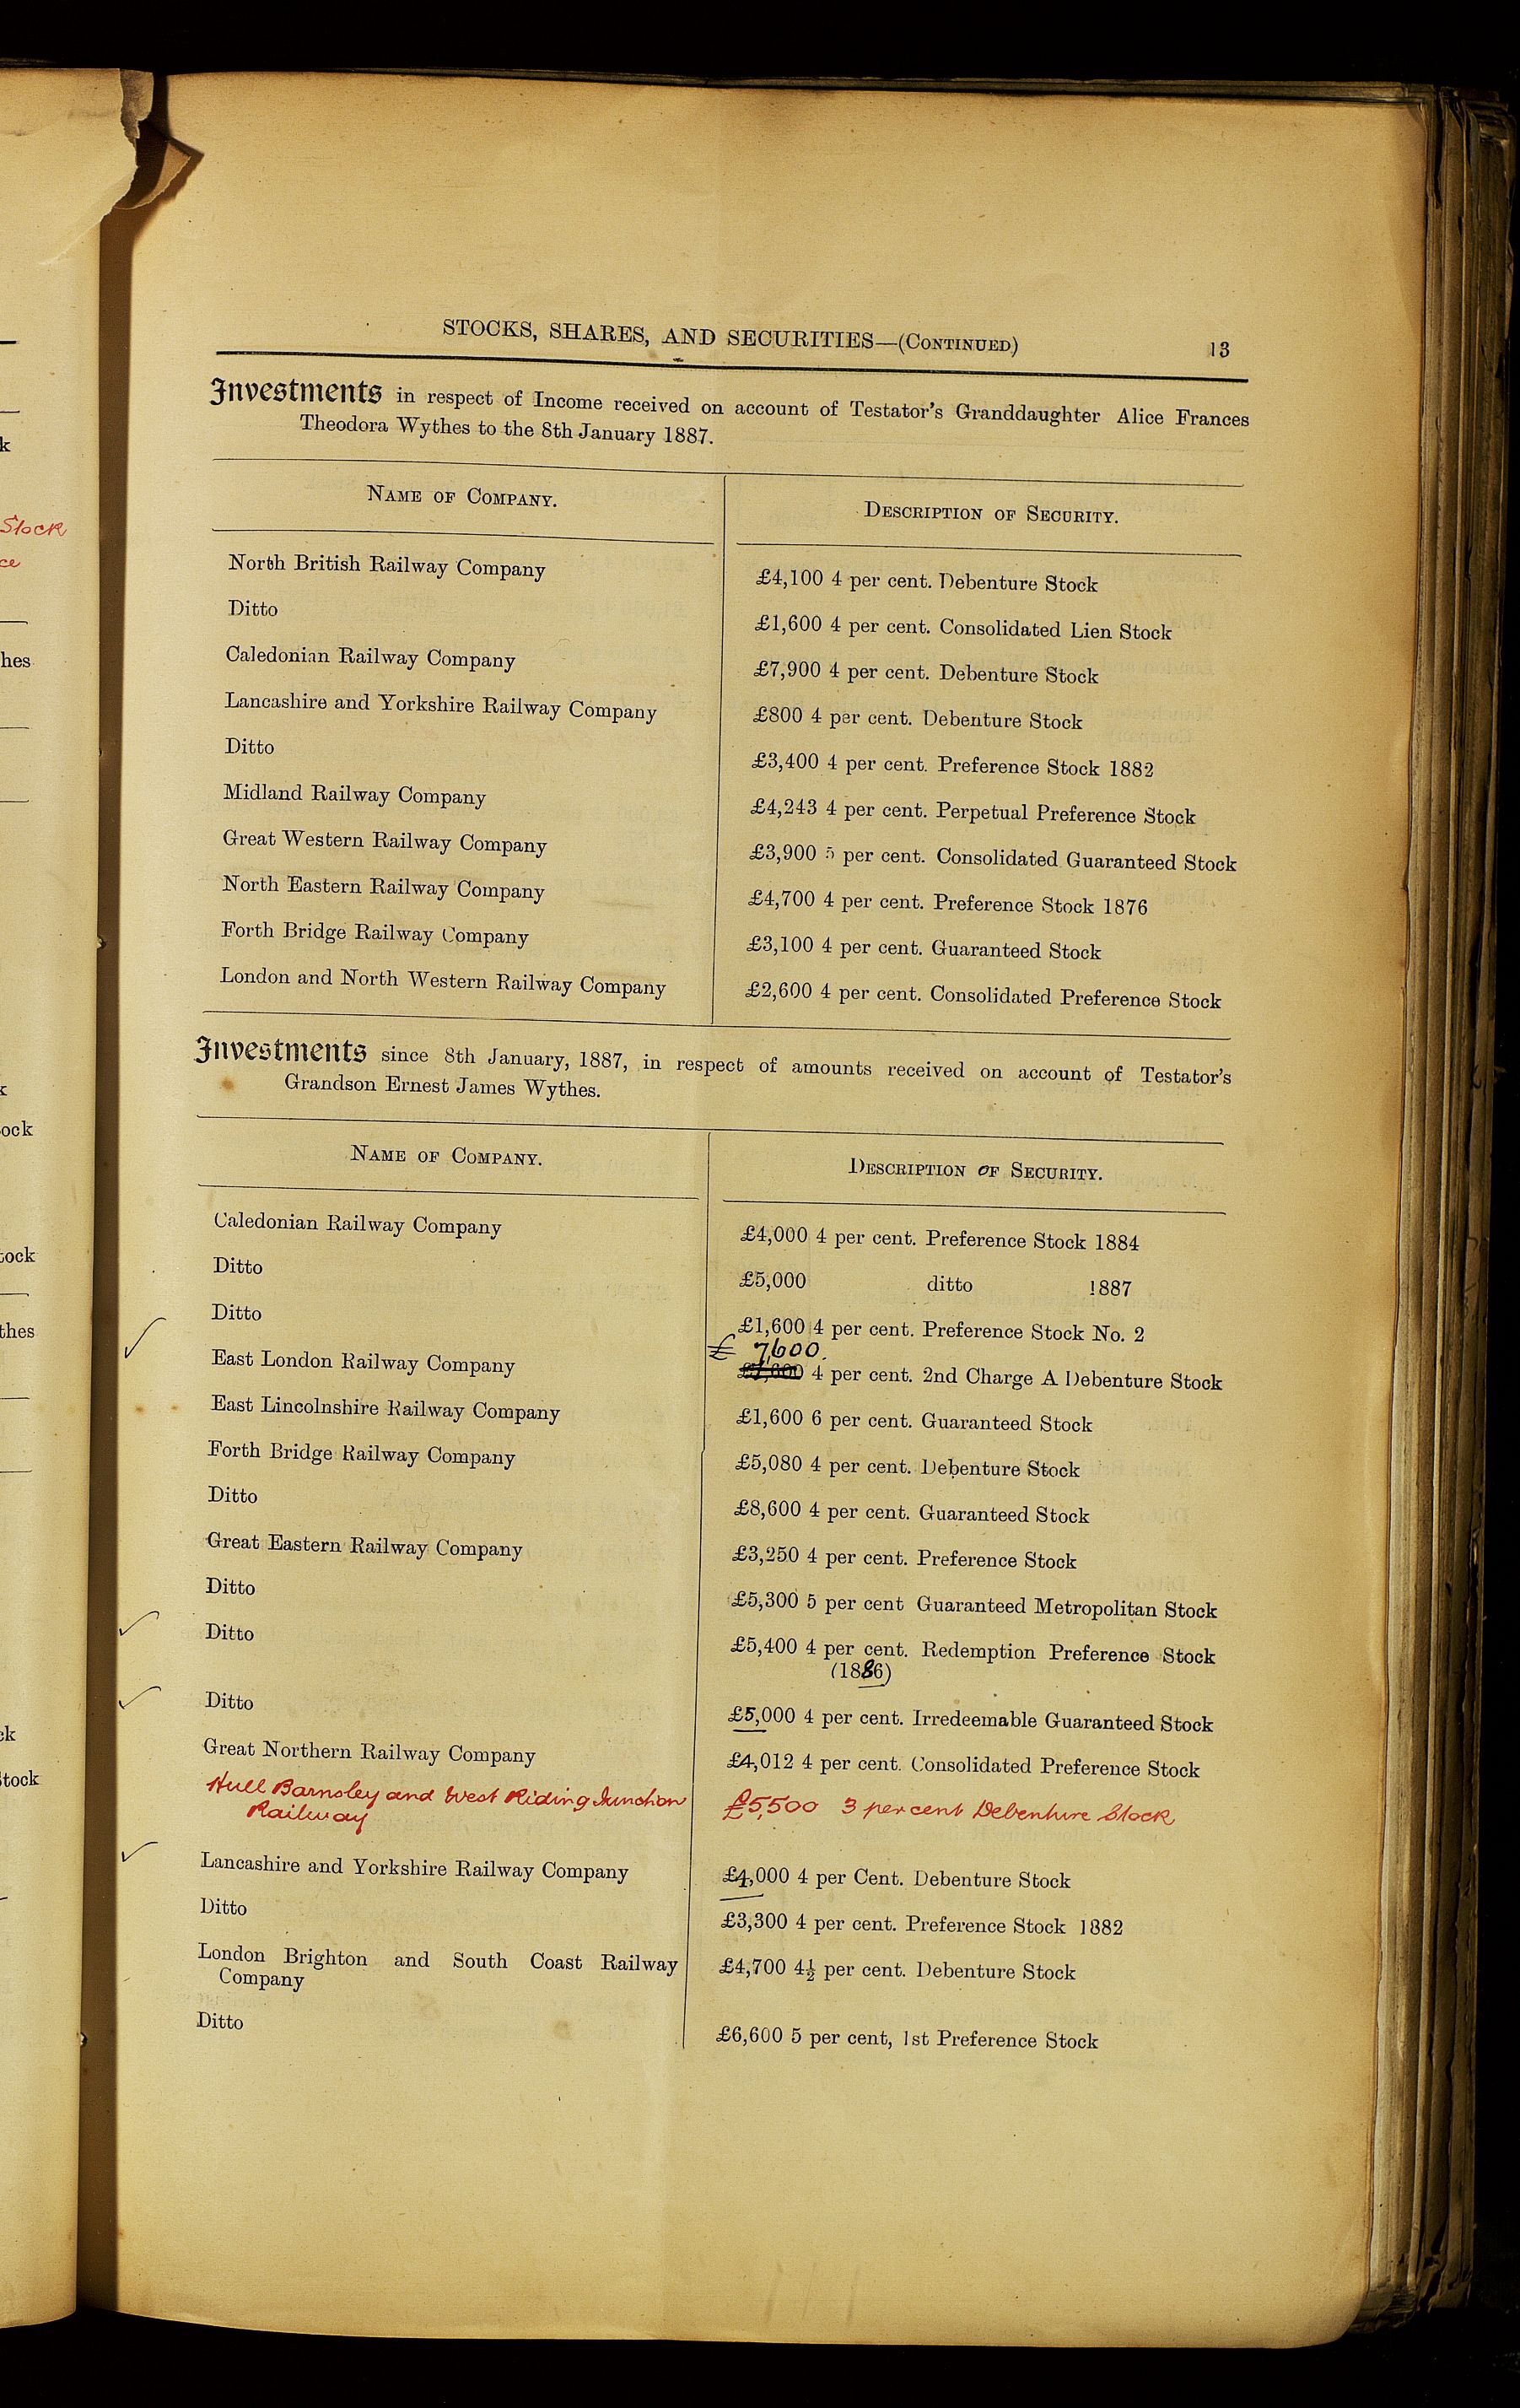 STOCKS, SHARES, AND SECURITIES—(CONTINUED) 13
Investments in respect of Income received on account of Testator's Granddaughter Alice Frances
Theodora Wythes to the 8th January 1887.
NAME OF COMPANY. DESCRIPTION OF SECURITY.
North British Railway Company £4,100 4 per cent. Debenture Stock
Ditto £1,600 4 per cent. Consolidated Lien Stock
Caledonian Railway Company £7,900 4 per cent. Debenture Stock
Lancashire and Yorkshire Railway Company £800 4 per cent. Debenture Stock
Ditto £3,400 4 per cent. Preference Stock 1882
Midland Railway Company £4,243 4 per cent. Perpetual Preference Stock
Great Western Railway Company £3,900 5 per cent. Consolidated Guaranteed Stock
North Eastern Railway Company £4,700 4 per cent. Preference Stock 1876
Forth Bridge Railway Company £3,100 4 per cent. Guaranteed Stock
London and North Western Railway Company £2,600 4 per cent. Consolidated Preference Stock
Investments since 8th January, 1887, in respect of amounts received on account of Testator's
Grandson Ernest James Wythes.
NAME OF COMPANY. DESCRIPTION OF SECURITY.
Caledonian Railway Company £4,000 4 per cent. Preference Stock 1884
Ditto £5,000 ditto 1887
Ditto £1,600 4 per cent. Preference Stock No. 2
£ 7,600.
East London Railway Company 4 per cent. 2nd Charge A Debenture Stock
East Lincolnshire Railway Company £1,600 6 per cent. Guaranteed Stock
Forth Bridge Railway Company £5,080 4 per cent. Debenture Stock
Ditto £8,600 4 per cent. Guaranteed Stock
Great Eastern Railway Company £3,250 4 per cent. Preference Stock
Ditto £5,300 5 per cent Guaranteed Metropolitan Stock
Ditto £5,400 4 per cent. Redemption Preference Stock
(1886)
Ditto £5,000 4 per cent. Irredeemable Guaranteed Stock
Great Northern Railway Company £4,012 4 per cent. Consolidated Preference Stock
Hull Barnsley and West Riding Junction £5,500 3 per cent Debenture Stock
Railway
Lancashire and Yorkshire Railway Company £4,000 4 per Cent. Debenture Stock
Ditto £3,300 4 per cent. Preference Stock 1882
London Brighton and South Coast Railway £4,700 4½ per cent. Debenture Stock
Company
Ditto £6,600 5 per cent, 1st Preference Stock